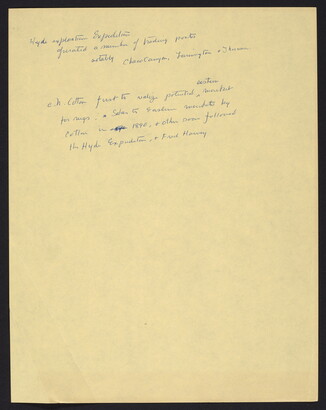 Hyde exploration Expedition
operated a number of trading posts
notably Chaco Canyon, Farmington + Thoreau
eastern
C.N. Cotton first to realize potential ^ market
for rugs. + Sales to Eastern markets by
Cotton in 1890, + other soon followed
the Hyde Expedition, + Fred Harvey